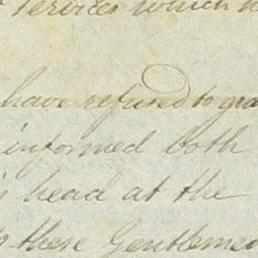 services which
have refused to gra
informed both
head at the
these Gentlemen